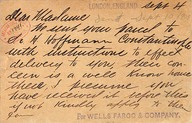 LONDON, ENGLAND, Sept 4
Dear Madame
We sent your parcel to
Hoffmann Constantinople
with instructions to effect
delivery to you their con
cern is a well known house
there I presume you
have received before this
if not kindly apply to the
Per WELLS FARGO & COMPANY.